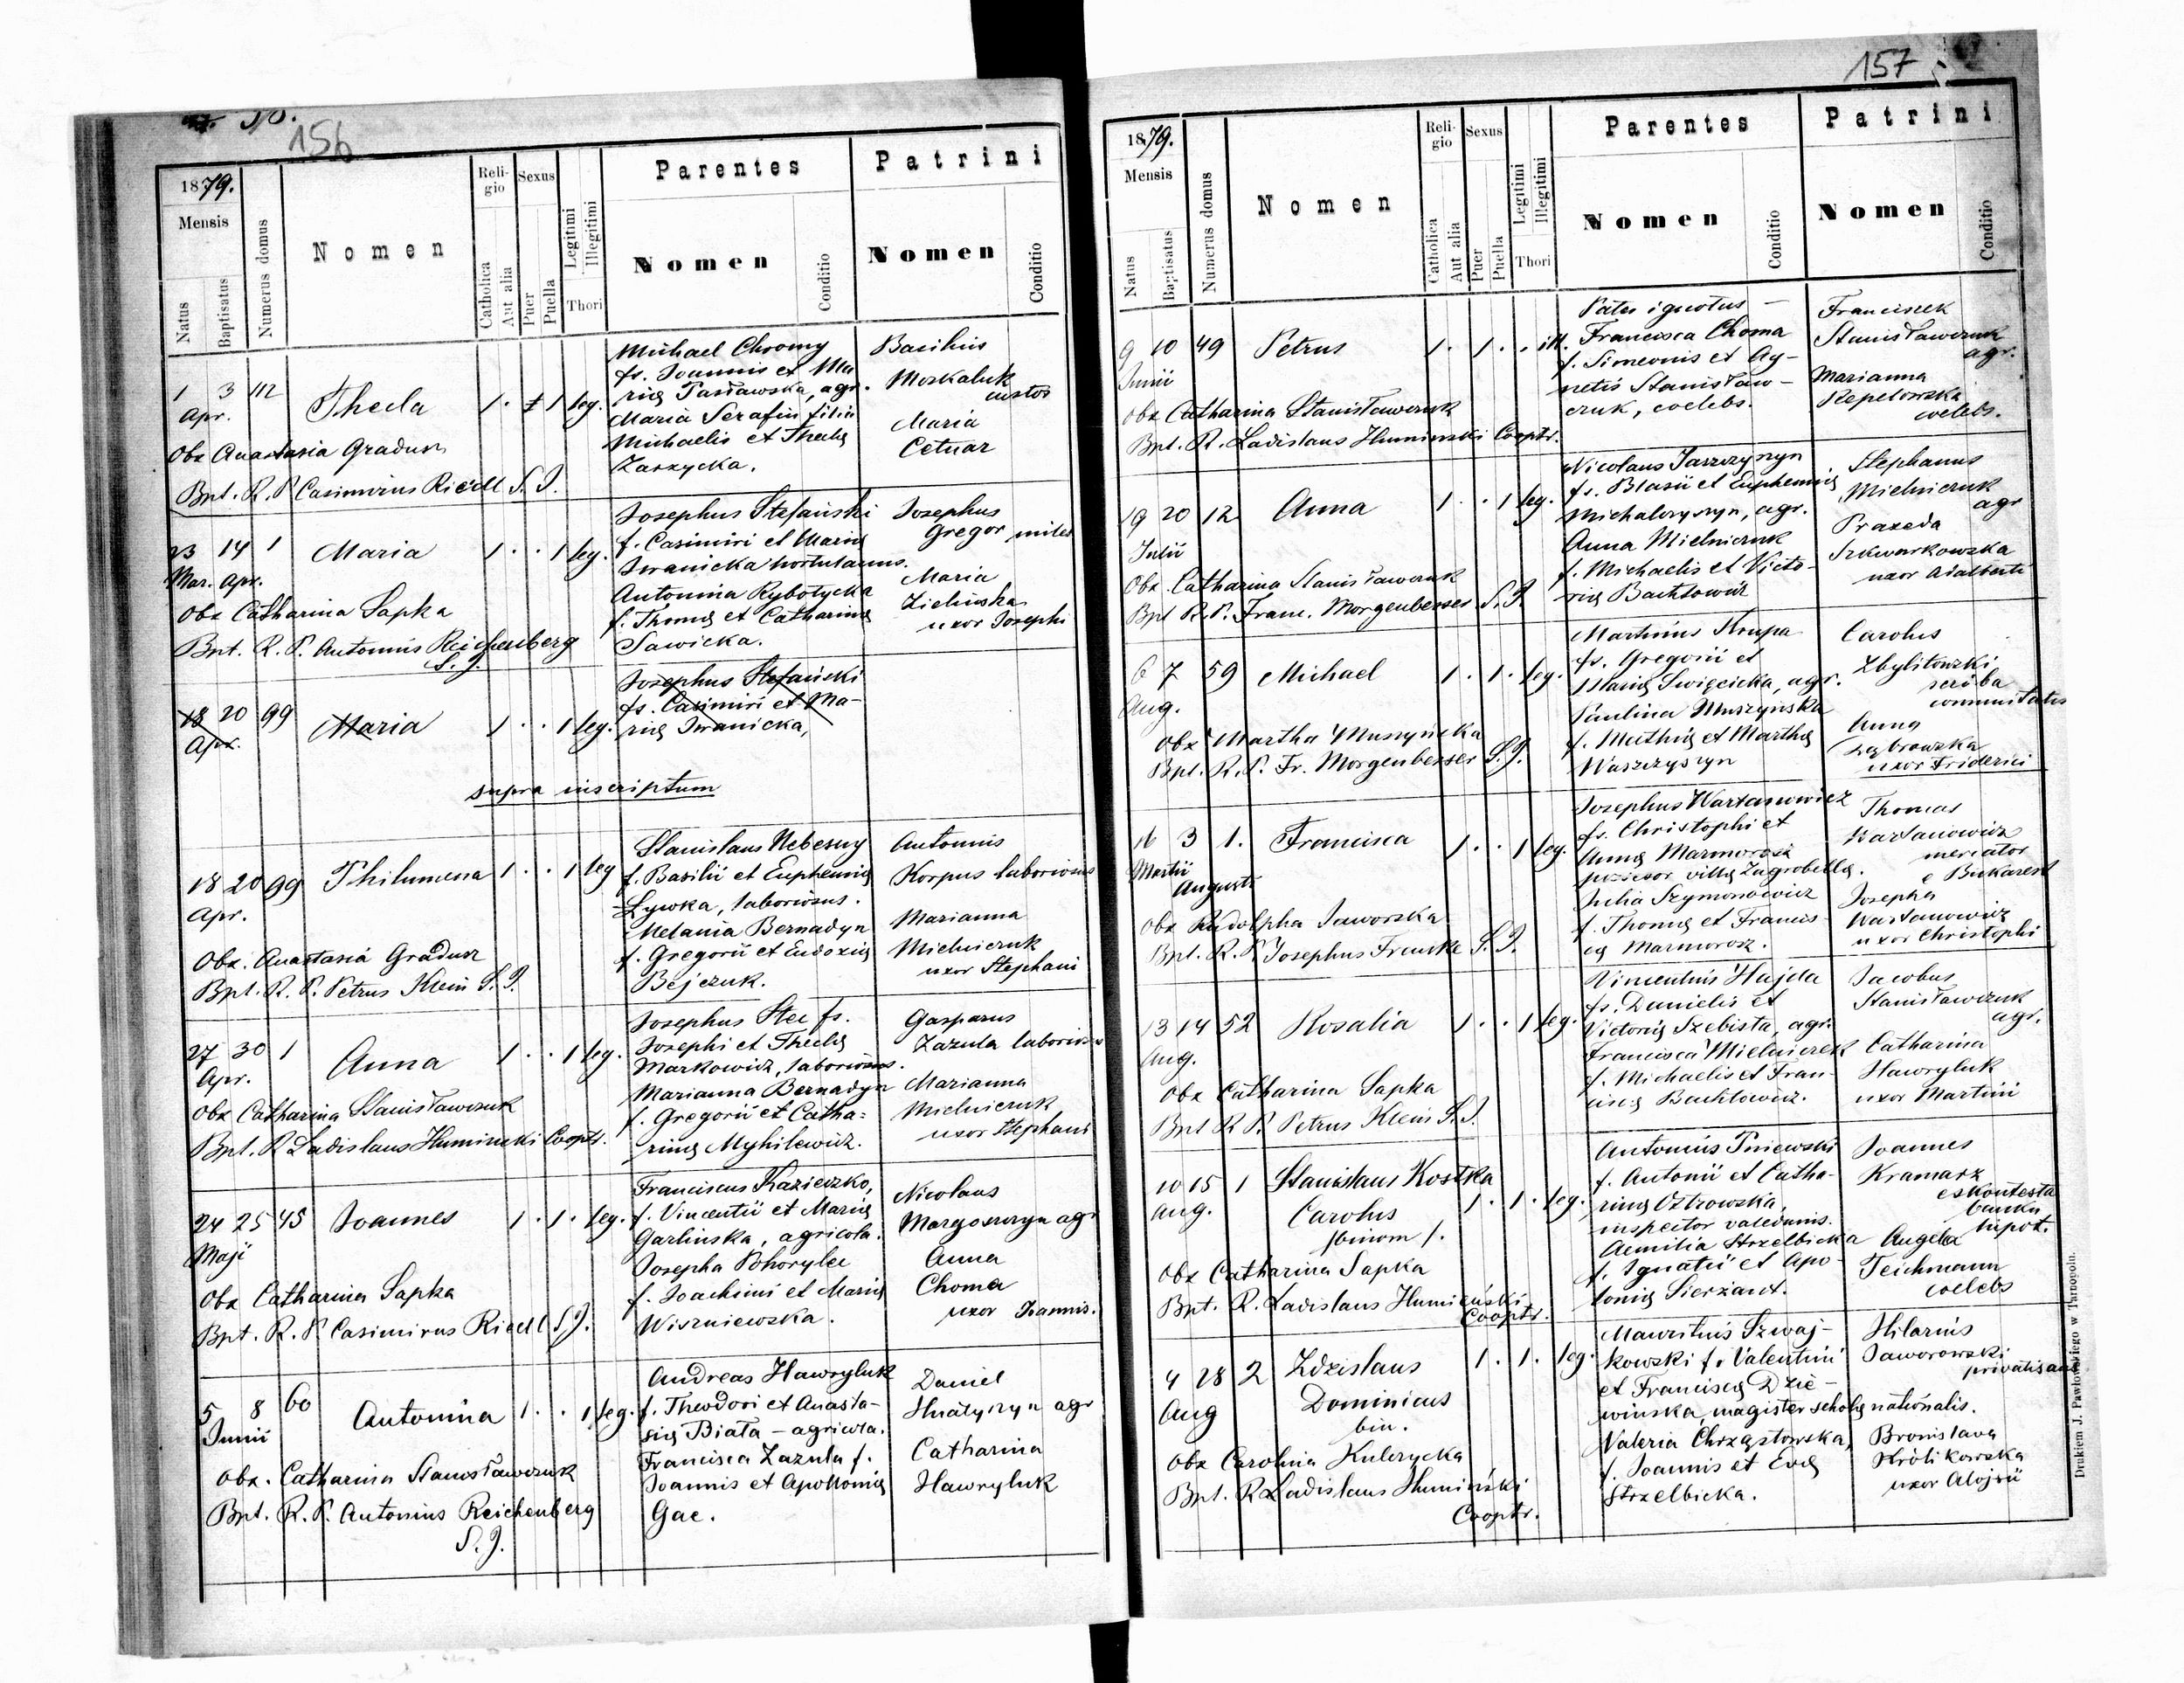 156
1879.
Mensis
Natus
Baptisatus
Numerus domus
Nomen
Religio
Catholica
Aut alia
Sexus
Puer
Puella
Legitimi
Illegitimi
Thori
Parentes
Nomen
Conditio
Patrini
Nomen
Conditio
1 3 112 Thecla 1 . 1 leg.
Apr.
Obx Anastasia Gradusz
Bpt. R. P. Casimirus Riedl S. J.
Michael Chromy
fs. Joannis et Ma-
riæ Pasławska, agr.
Maria Serafin filia
Michaelis et Theclæ
Zaszycka.
Basilius
Moskaluk
custos
Maria
Cetnar
23 14 1 Maria 1 . . 1 leg.
Mar. Apr.
Obx Catharina Sapka
Bpt. R. P. Antonius Reichenberg
S. J.
Josephus Stefański
f. Casimiri et Mariæ
Iwanicka hortulanus.
Antonina Rybotycka
f. Thomæ et Catharinæ
Sawicka.
Josephus
Gregor miles
Maria
Zielińska
uxor Josephi
18 20 99 Maria 1 . . 1 leg.
Apr.
Josephus Stefański
fs. Casimiri et Ma-
riæ Iwanicka,
supra inscriptum
18 20 99 Philumena 1 . . 1 leg
Apr.
Obx. Anastasia Gradusz
Bpt. R. P. Petrus Klein S. J.
Stanislaus Nebesny
f. Basilii et Euphemiæ
Lywka, laboriosus.
Melania Bernadyn
f. Gregorii et Eudoxiæ
Bejczuk.
Antonius
Korpus laboriosus
Marianna
Mielniczuk
uxor Stephani
27 30 1 Anna 1 . . 1 leg.
Apr.
Obx Catharina Stanisławczuk
Bpt. R. Ladislaus Humiński Cooptr.
Josephus Stec fs.
Josephi et Theclæ
Markowicz, laboriosus.
Marianna Bernadyn
f. Gregorii et Catha=
rinæ Myhilewicz.
Gasparus
Zazula laboriosus
Marianna
Mielniczuk
uxor Stephani
24 25 45 Joannes 1 . 1 . leg.
Maji
Obx Catharina Sapka
Bpt. R. P. Casimirus Riedl S. J.
Franciscus Kazieczko,
f. Vincentii et Mariæ
Garlinska, agricola.
Josepha Pohorylec
f. Joachimi et Mariæ
Wiszniewska.
Nicolaus
agr
Anna
Choma
uxor Joannis.
5 8 60 Antonina 1 . . 1 leg.
Junii
Obx. Catharina Stanisławczuk
Bpt. R. P. Antonius Reichenberg
S. J.
Andreas Hawryluk
f. Theodori et Anasta-
siæ Biała - agricola.
Francisca Zazula f.
Joannis et Apolloniæ
Gac.
Daniel
Hnatyszyn agr
Catharina
Hawryluk
157
1879.
Mensis
Natus
Baptisatus
Numerus domus
Nomen
Religio
Catholica
Aut alia
Sexus
Puer
Puella
Legitimi
Illegitimi
Thori
Parentes
Nomen
Conditio
Patrini
Nomen
Conditio
9 10 49 Petrus 1 . 1 . . ill.
Junii
Obx Catharina Stanisławczuk
Bpt. R. Ladislaus Humiński Cooptr.
Pater ignotus -
Francisca Choma
f. Simeonis et Ag-
netis Stanisław-
czuk, coelebs.
Franciscek
Stanisławczuk
agr.
Marianna
Repelowska
coelebs.
19 20 12 Anna 1 . . 1 leg.
Julii
Obx. Catharina Stanisławczuk
Bpt R. P. Franc. Morgenbesser S. J.
Nicolaus Jaszczyszyn
fs. Blasii et Euphemiæ
Michalczyszyn, agr.
Anna Mielniczuk
f. Michaelis et Victo-
riæ Bachtowicz
Stephanus
Mielniczuk
agr
Praxeda
Szkwarkowska
uxor Adalberti
6 7 59 Michael 1 . 1 . leg.
Aug.
Obx Martha Muszyńska
Bpt. R. P. Fr. Morgenbesser S. J.
Martinus Krupa
fs. Gregorii et
Mariæ Swięcicka, agr.
Paulina Muszyńska
f. Mathiæ et Marthæ
Waszczyszyn
Carolus
Zbylitowski
scriba
communitatis
Anna
uxor Friderici
16 3 1. Francisca 1 . . 1 leg.
Martii
Augusti
Obx Rudolpha Jaworska
Bpt. R. P. Josephus Frenske S. J.
Josephus Wartanowicz
fs. Christophi et
Annæ Marmorosz
possesor villæ Zagrobellæ.
Julia Szymonowicz
f. Thomæ et Francis-
cæ Marmorosz.
Thomas
Wartanowicz
mercator
e Bukarest
Josepha
Wartanowicz
uxor Christophi
13 14 52 Rosalia 1 . . 1 leg.
Aug.
Obx Catharina Sapka
Bpt R P. Petrus Klein S. J.
Vincentius Hajda
fs. Danielis et
Victoriæ Szebista, agr.
Francisca Mielniczek
f. Michaelis et Fran-
ciscæ Bachtowicz.
Jacobus
Stanisławczuk
agr.
Catharina
Hawryluk
uxor Martini
10 15 1 Stanislaus Kostka 1 . 1 . leg.
Aug.
Carolus
/binom/.
Obx Catharina Sapka
Bpt. R. Ladislaus Humiński
Cooptr.
Antonius Pniewski
f. Antonii et Catha-
rinæ Ostrowska,
inspector
Aemilia Strzelbicka
f. Ignatii et Apo-
loniæ Sierżant.
Joannes
Kramarz
eskontesta
banku
hipot.
Angela
Teichmann
coelebs
4 28 2 Zdzislaus 1 . 1 . leg.
Aug
Dominicus
bin.
Obx Carolina Kulczycka
Bpt. R Ladislaus Humiński
Cooptr.
Mauritius Szwaj-
kowski fs Valentini
et Franciscæ Dzie-
wińska, magister scholæ nationalis.
Valeria Chrząstowska,
f. Joannis et Evæ
Strzelbicka.
Hilarius
Jaworowski
privatisans
Bronislava
Królikowska
uxor Alojsii
Drukiem J. Pawłowskiego w Tarnopolu.